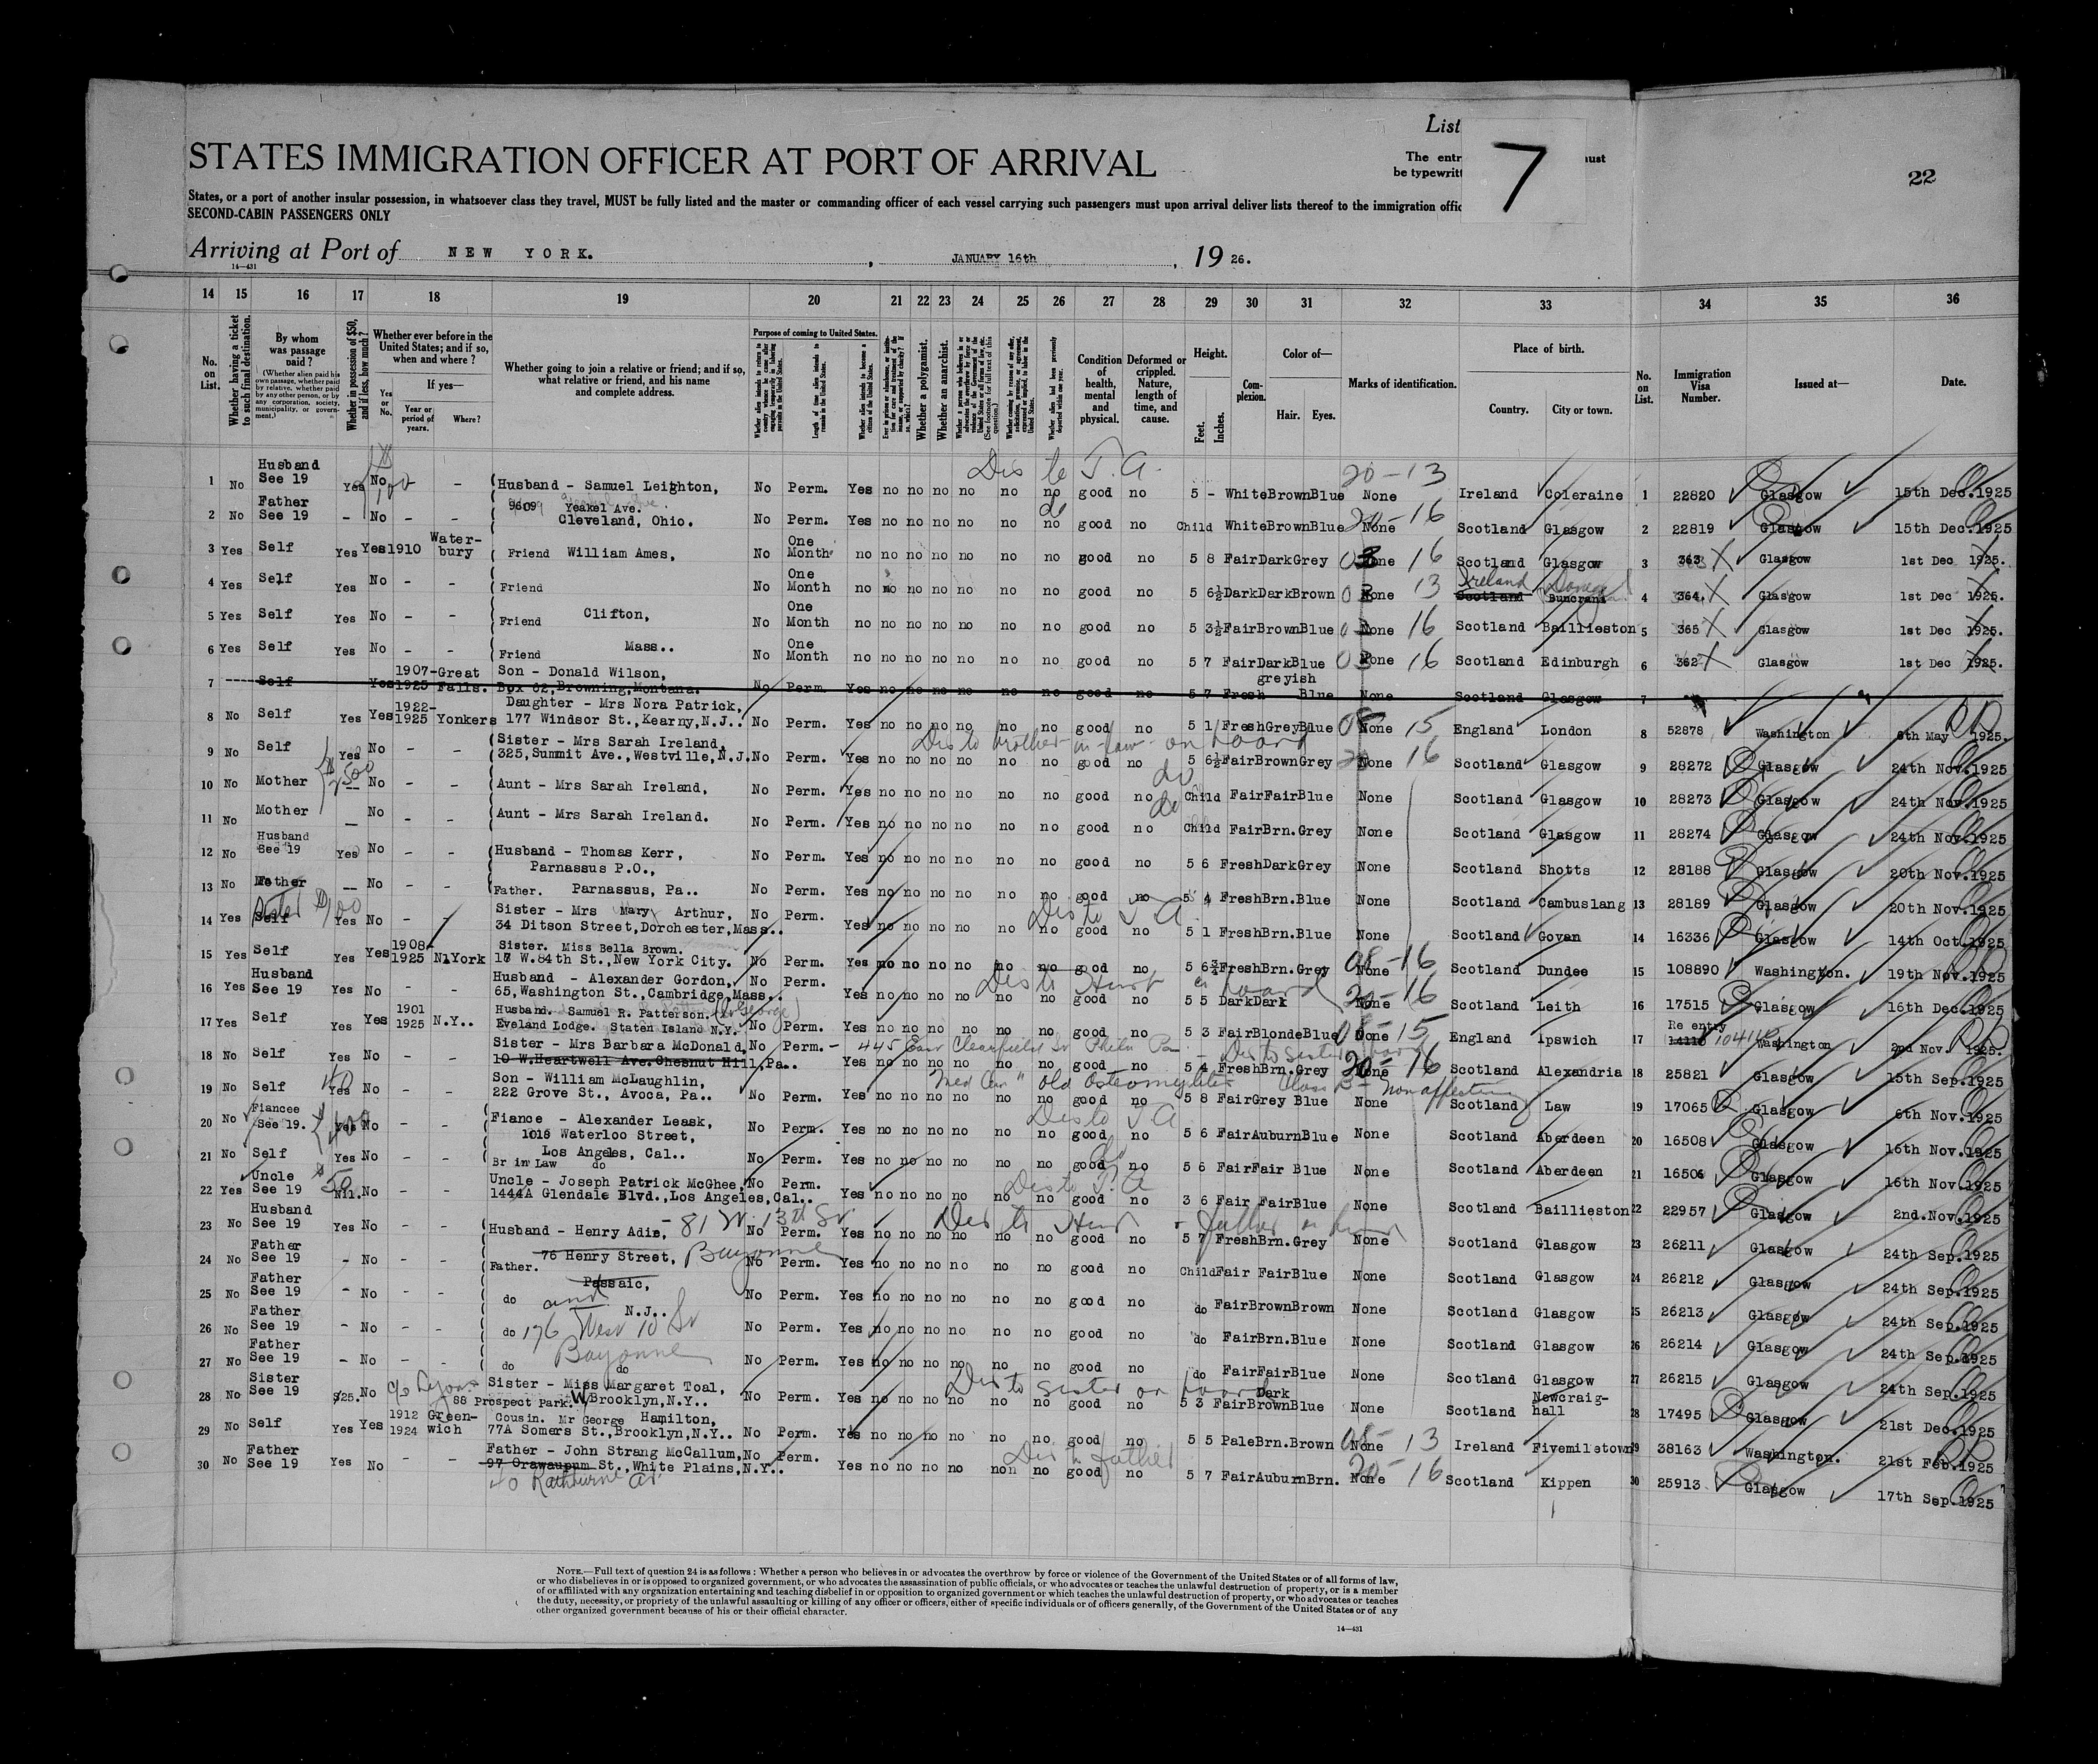 List
7
STATES IMMIGRATION OFFICER AT PORT OF ARRIVAL
The entr
must
be typewritt
22
States, or a port of another insular possession, in whatsoever class they travel, MUST be fully listed and the master or commanding officer of each vessel carrying such passengers must upon arrival deliver lists thereof to the immigration offic
SECOND-CABIN PASSENGERS ONLY
Arriving at Port of NEW YORK. , JANUARY 16th , 19 26.
14—431
14 15 16 17 18 19 20 21 22 23 24 25 26 27 28 29 30 31 32 33 34 35 36
No. on List.
Whether having a ticket to such final destination.
By whom was passage paid?
(Whether alien paid his own passage, whether paid by relative, whether paid by any other person, or by any corporation, society, municipality, or government.)
Whether in possession of $50, and if less, how much?
Whether ever before in the United States; and if so, when and where?
Yes or No.
If yes—
Year or period of years.
Where?
Whether going to join a relative or friend; and if so, what relative or friend, and his name and complete address.
Purpose of coming to United States.
Length of time alien intends to remain in the United States.
Whether alien intends to become a citizen of the United States.
Whether a polygamist.
Whether an anarchist.
Condition of health, mental and physical.
Deformed or crippled. Nature, length of time, and cause.
Height.
Feet.
Inches.
Complexion.
Color of—
Hair.
Eyes.
Marks of identification.
Place of birth.
Country.
City or town.
No. on List.
Immigration Visa Number.
Issued at—
Date.
1 No Husband See 19 Yes No 100 – Husband - Samuel Leighton, No Perm. Yes no no no no no no good no 5 - White Brown Blue None 20-13 Ireland Coleraine 1 22820 Glasgow 15th Dec. 1925
2 No Father See 19 - No - - 9609 Yeakel Ave. Cleveland, Ohio. No Perm. Yes no no no no no no good no Child White Brown Blue None 20-16 Scotland Glasgow 2 22819 Glasgow 15th Dec. 1925
3 Yes Self Yes Yes 1910 Water-bury Friend William Ames, No One Month no no no no no no no good no 5 8 Fair Dark Grey None 16 Scotland Glasgow 3 363 Glasgow 1st Dec 1925.
4 Yes Self Yes No - - Friend No One Month no no no no no no no good no 5 6½ Dark Dark Brown None 13 Scotland Ireland Buncrana Donegal 4 364. Glasgow 1st Dec 1925.
5 Yes Self Yes No - - Friend Clifton, No One Month no no no no no no no good no 5 3½ Fair Brown Blue None 16 Scotland Baillieston 5 365 Glasgow 1st Dec 1925.
6 Yes Self Yes No - - Friend Mass.. No One Month no no no no no no no good no 5 7 Fair Dark Blue None 16 Scotland Edinburgh 6 362 Glasgow 1st Dec 1925.
7 Self Yes 1907-1925 Great Falls. Son - Donald Wilson, Box 62, Browning, Montana. No Perm. Yes no no no no no no good no 5 7 Fresh greyish Blue None Scotland Glasgow 7
8 No Self Yes Yes 1922-1925 Yonkers Daughter - Mrs Nora Patrick, 177 Windsor St., Kearny, N.J.. No Perm. Yes no no no no no no good no 5 1 Fresh Grey Blue None 15 England London 8 52878 Washington 6th May 1925.
9 No Self Yes No - - Sister - Mrs Sarah Ireland, 325, Summit Ave., Westville, N.J. No Perm. Yes no no no no no no good no 5 6½ Fair Brown Grey None 20 16 Scotland Glasgow 9 28272 Glasgow 24th Nov. 1925
Dis to brother-in-law on board
10 No Mother -- No - - Aunt - Mrs Sarah Ireland, No Perm. Yes no no no no no no good no Child Fair Fair Blue None Scotland Glasgow 10 28273 Glasgow 24th Nov. 1925
11 No Mother -- No - - Aunt - Mrs Sarah Ireland. No Perm. Yes no no no no no no good no Child Fair Brn. Grey None Scotland Glasgow 11 28274 Glasgow 24th Nov. 1925
12 No Husband See 19 Yes No - - Husband - Thomas Kerr, Parnassus P.O., No Perm. Yes no no no no no no good no 5 6 Fresh Dark Grey None Scotland Shotts 12 28188 Glasgow 20th Nov. 1925
13 No Father -- No - - Father. Parnassus, Pa.. No Perm. Yes no no no no no no good no 5 4 Fresh Brn. Blue None Scotland Cambuslang 13 28189 Glasgow 20th Nov. 1925
14 Yes Self Sister $100 Yes No - - Sister - Mrs Mary Arthur, 34 Ditson Street, Dorchester, Mass.. No Perm. Yes no no no no no no good no 5 1 Fresh Brn. Blue None Scotland Govan 14 16336 Glasgow 14th Oct. 1925
15 Yes Self Yes Yes 1908-1925 N.York Sister. Miss Bella Brown. 17 W. 84th St., New York City. No Perm. Yes no no no no no no good no 5 6¾ Fresh Brn. Grey None 16 Scotland Dundee 15 108890 Washington. 19th Nov. 1925
16 Yes Husband See 19 Yes No - - Husband - Alexander Gordon, 65, Washington St., Cambridge, Mass.. No Perm. Yes no no no no no no good no 5 5 Dark Dark None 20-16 Scotland Leith 16 17515 Glasgow 16th Dec. 1925
17 Yes Self Yes Yes 1901 1925 N.Y.. Husband. Samuel R. Patterson. (St George) Eveland Lodge. Staten Island N.Y. No Perm. Yes no no no no no no good no 5 3 Fair Blonde Blue None 15 England Ipswich 17 Re entry Washington 2nd Nov. 1925.
18 No Self Yes No - - Sister - Mrs Barbara McDonald, 10 W. Heartwell Ave. Chesnut Hill, Pa.. No Perm. 445 East Clearfield St Phila Pa Yes no no no no no no good no 5 4 Fresh Brn. Grey None 20-16 Scotland Alexandria 18 25821 Glasgow 15th Sep. 1925
19 No Self Yes No - Son - William McLaughlin, 222 Grove St., Avoca, Pa.. No Perm. Yes no no no no no no good no 5 8 Fair Grey Blue None Scotland Law 19 17065 Glasgow 6th Nov. 1925
20 No Fiancee See 19. Yes No - - Fiance - Alexander Leask, 1018 Waterloo Street, No Perm. Yes no no no no no no good no 5 6 Fair Auburn Blue None Scotland Aberdeen 20 16508 Glasgow 16th Nov. 1925
21 No Self Yes No - - Los Angeles, Cal.. Br in Law do No Perm. Yes no no no no no no good no 5 6 Fair Fair Blue None Scotland Aberdeen 21 16506 Glasgow 16th Nov. 1925
22 Yes Uncle See 19 $50 Nil. No - - Uncle - Joseph Patrick McGhee, 1444A Glendale Blvd., Los Angeles, Cal.. No Perm. Yes no no no no no no good no 3 6 Fair Fair Blue None Scotland Baillieston 22 22957 Glasgow 2nd. Nov. 1925
23 No Husband See 19 Yes No - - Husband - Henry Adis, 81 W. 13th St No Perm. Yes no no no no no no good no 5 7 Fresh Brn. Grey None Scotland Glasgow 23 26211 Glasgow 24th Sep. 1925
24 No Father See 19 - No - - Father. 76 Henry Street, Bayonne No Perm. Yes no no no no no no good no Child Fair Fair Blue None Scotland Glasgow 24 26212 Glasgow 24th Sep. 1925
25 No Father See 19 - No - - do Passaic, and No Perm. Yes no no no no no no good no do Fair Brown Brown None Scotland Glasgow 25 26213 Glasgow 24th Sep. 1925
26 No Father See 19 - No - - do N.J.. 176 West 10 St No Perm. Yes no no no no no no good no do Fair Brn. Blue None Scotland Glasgow 26 26214 Glasgow 24th Sep. 1925
27 No Father See 19 - No - - do Bayonne do No Perm. Yes no no no no no no good no do Fair Fair Blue None Scotland Glasgow 27 26215 Glasgow 24th Sep. 1925
28 No Sister See 19 $25. No c/o Lyons Sister - Miss Margaret Toal, 88 Prospect Park. W Brooklyn, N.Y.. No Perm. Yes no no no no no no good no 5 3 Fair Dark Brown Blue None Scotland Newcraig-hall 28 17495 Glasgow 21st Dec. 1925
Dis to sister on board
29 No Self Yes Yes 1912 1924 Green-wich Cousin. Mr George Hamilton, 77A Somers St., Brooklyn, N.Y.. No Perm. Yes no no no no no no good no 5 5 Pale Brn. Brown None 13 Ireland Fivemiletown 29 38163 Washington. 21st Feb. 1925
30 No Father See 19 Yes No - - Father - John Strang McCallum, 97 Orawaupum St., White Plains, N.Y.. No Perm. Yes no no no no non no good no 5 7 Fair Auburn Brn. None 20-16 Scotland Kippen 30 25913 Glasgow 17th Sep. 1925
NOTE.—Full text of question 24 is as follows: Whether a person who believes in or advocates the overthrow by force or violence of the Government of the United States or of all forms of law,
or who disbelieves in or is opposed to organized government, or who advocates the assassination of public officials, or who advocates or teaches the unlawful destruction of property, or is a member
of or affiliated with any organization entertaining and teaching disbelief in or opposition to organized government or which teaches the unlawful destruction of property, or who advocates or teaches
the duty, necessity, or propriety of the unlawful assaulting or killing of any officer or officers, either of specific individuals or of officers generally, of the Government of the United States or of any
other organized government because of his or their official character.
14—431